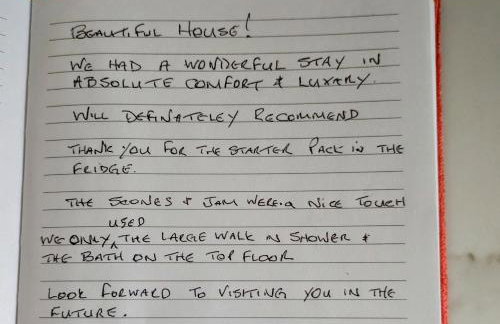 BEAUTIFUL HOUSE!
WE HAD A WONDERFUL STAY IN
ABSOLUTE COMFORT & LUXARY.
WILL DEFINATELEY RECOMMEND
THANK YOU FOR THE STARTER PACK IN THE
FRIDGE.
THE SCONES & JAM WERE A NICE TOUCH
USED
WE ONLY ^ THE LARGE WALK IN SHOWER &
THE BATH ON THE TOP FLOOR
LOOK FORWARD TO VISITING YOU IN THE
FUTURE.